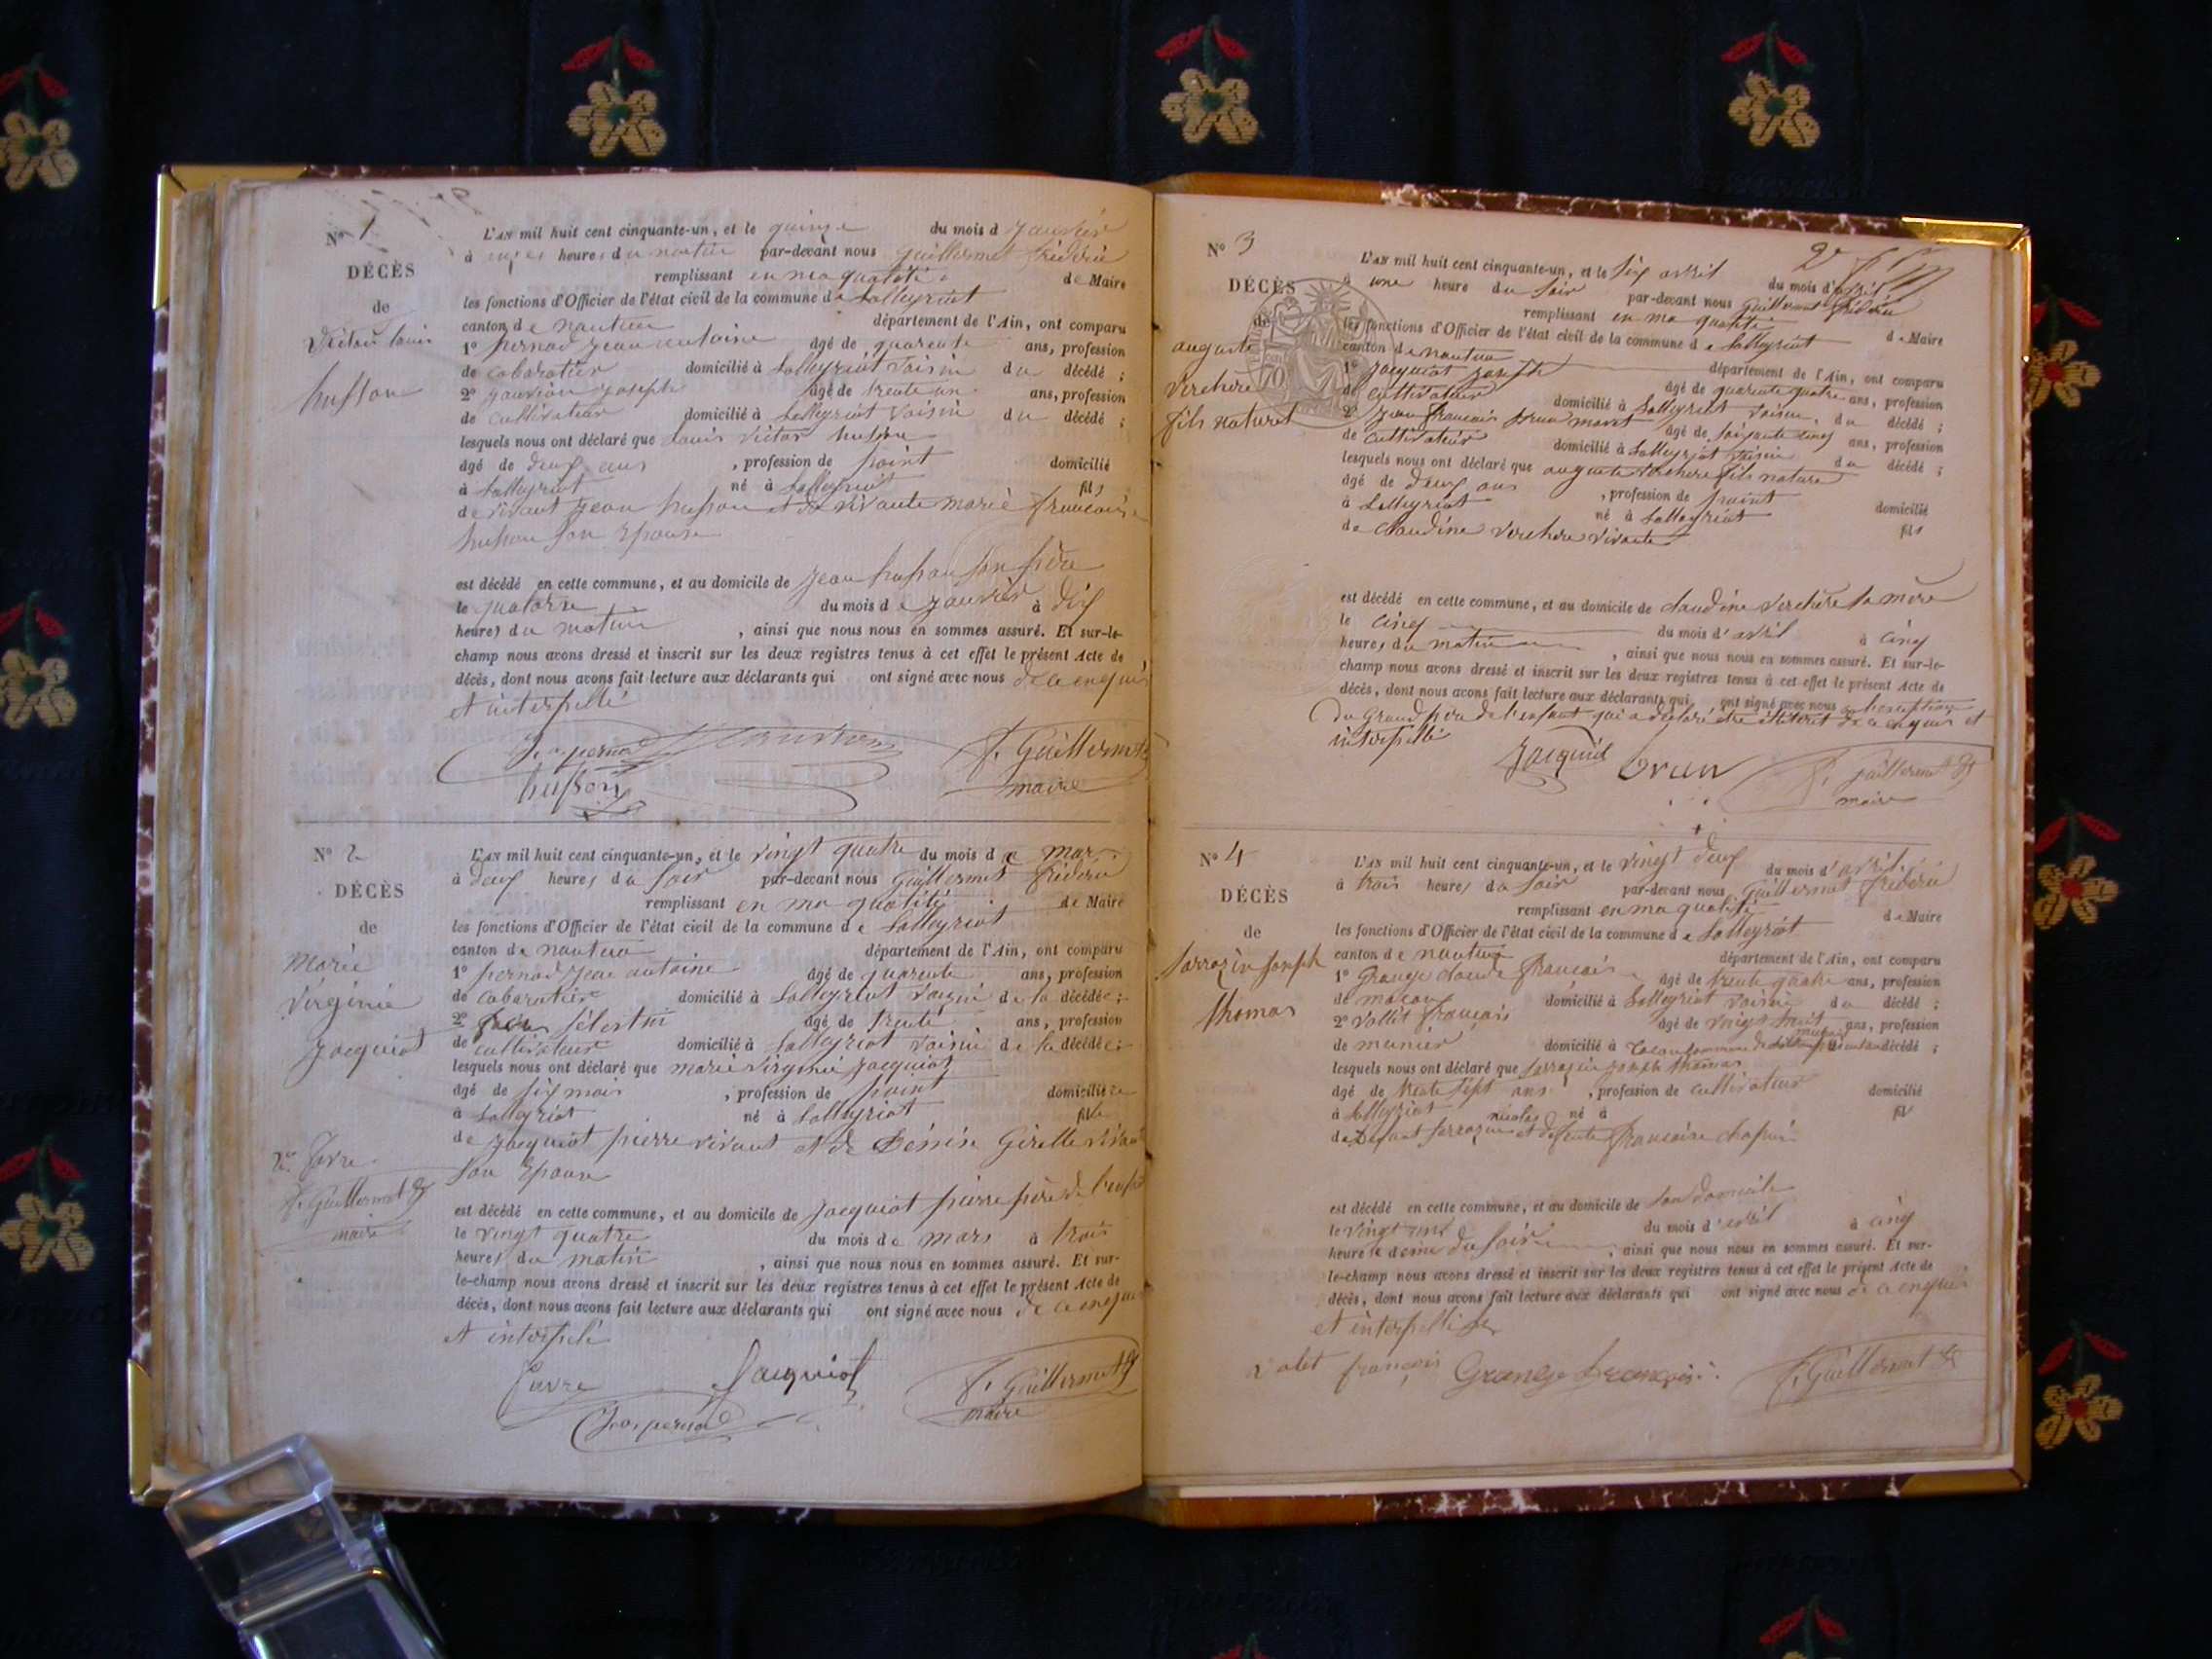 N° 1
DÉCÈS
de
Victor Louis
husson
L'AN mil huit cent cinquante-un, et le quinze du mois d janvier
à heures du matin par-devant nous Guillermet frédéric
remplissant en ma qualité de Maire
les fonctions d'Officier de l'état civil de la commune de Lalleyriat
canton de nantua département de l'Ain, ont comparu
1° pernod jean antoine âgé de quarente ans, profession
de cabaratier domicilié à Lalleyriat voisin du décédé ;
2° joseph âgé de trente un ans, profession
de cultivateur domicilié à Lalleyriat voisin du décédé ;
lesquels nous ont déclaré que Louis victor husson
âgé de deux ans , profession de point domicilié
à Lalleyriat né à Lalleyriat fils
de vivant jean husson et de vivante marie françoise
husson son épouse
est décédé en cette commune, et au domicile de jean husson son père
le quatorze du mois de janvier à dix
heures du matin , ainsi que nous nous en sommes assuré. Et sur-le-
champ nous avons dressé et inscrit sur les deux registres tenus à cet effet le présent Acte de
décès, dont nous avons fait lecture aux déclarants qui ont signé avec nous de ce enquis
et interpellé
pernod F. Guillermet
husson maire
N° 2
DÉCÈS
de
Marie
Virginie
jacquiot
favre
F. Guillermet
maire
L'AN mil huit cent cinquante-un, et le vingt quatre du mois de mars
à deux heures du soir par-devant nous Guillermet frédéric
remplissant en ma qualité de Maire
les fonctions d'Officier de l'état civil de la commune de Lalleyriat
canton de nantua département de l'Ain, ont comparu
1° pernod jean antoine âgé de quarente ans, profession
de cabaratier domicilié à Lalleyriat voisin de la décédée ;
2° sélestin âgé de trente ans, profession
de cultivateur domicilié à Lalleyriat voisin de la décédée ;
lesquels nous ont déclaré que marie virginie jacquiot
âgé de six mois , profession de point domiciliée
à Lalleyriat né à Lalleyriat fille
de jacquiot pierre vivant et de Girelle
son épouse
est décédé en cette commune, et au domicile de jacquiot pierre père de l'enfant
le vingt quatre du mois de mars à trois
heures du matin , ainsi que nous nous en sommes assuré. Et sur-
le-champ nous avons dressé et inscrit sur les deux registres tenus à cet effet le présent Acte de
décès, dont nous avons fait lecture aux déclarants qui ont signé avec nous de ce enquis
et interpelé
favre Jacquiot F. Guillermet
pernod maire
N° 3
DÉCÈS
de
auguste
Verchere
fils naturel
L'AN mil huit cent cinquante-un, et le six avril du mois d'avril
à une heure du soir par-devant nous Guillermet frédéric
remplissant en ma qualité de Maire
les fonctions d'Officier de l'état civil de la commune de Lalleyriat
canton de nantua département de l'Ain, ont comparu
1° jacquiot joseph âgé de quarente quatre ans, profession
de cultivateur domicilié à Lalleyriat voisin du décédé ;
2° jean françois âgé de soixante cinq ans, profession
de cultivateur domicilié à Lalleyriat voisin du décédé ;
lesquels nous ont déclaré que auguste verchere fils naturel
âgé de deux ans , profession de point domicilié
à Lalleyriat né à Lalleyriat fils
de claudine verchere vivante
est décédé en cette commune, et au domicile de claudine verchère sa mère
le cinq du mois d'avril à cinq
heures du matin , ainsi que nous nous en sommes assuré. Et sur-le-
champ nous avons dressé et inscrit sur les deux registres tenus à cet effet le présent Acte de
décès, dont nous avons fait lecture aux déclarants qui ont signé avec nous
du grand père de l'enfant qui a déclaré être illitéret de ce enquis et
interpellé
Jacquiot brun F. Guillermet
maire
N° 4
DÉCÈS
de
Sarrazin joseph
thomas
L'AN mil huit cent cinquante-un, et le vingt deux du mois d'avril
à trois heures du soir par-devant nous Guillermet frédéric
remplissant en ma qualité de Maire
les fonctions d'Officier de l'état civil de la commune de Lalleyriat
canton de nantua département de l'Ain, ont comparu
1° Grange claude françois âgé de trente quatre ans, profession
de maçon domicilié à Lalleyriat voisin du décédé ;
2° vallet françois âgé de vingt huit ans, profession
de meunier domicilié à décédé ;
lesquels nous ont déclaré que Sarrazin joseph thomas
âgé de trente sept ans , profession de cultivateur domicilié
à Lalleyriat né à fils
de défunt sarrazin nicolas et défunte françoise chapuis
est décédé en cette commune, et au domicile de son domicile
le vingt une du mois d'avril à cinq
heures demi du soir , ainsi que nous nous en sommes assuré. Et sur-
le-champ nous avons dressé et inscrit sur les deux registres tenus à cet effet le présent Acte de
décès, dont nous avons fait lecture aux déclarants qui ont signé avec nous de ce enquis
et interpellé
valet françois Grange françois F. Guillermet